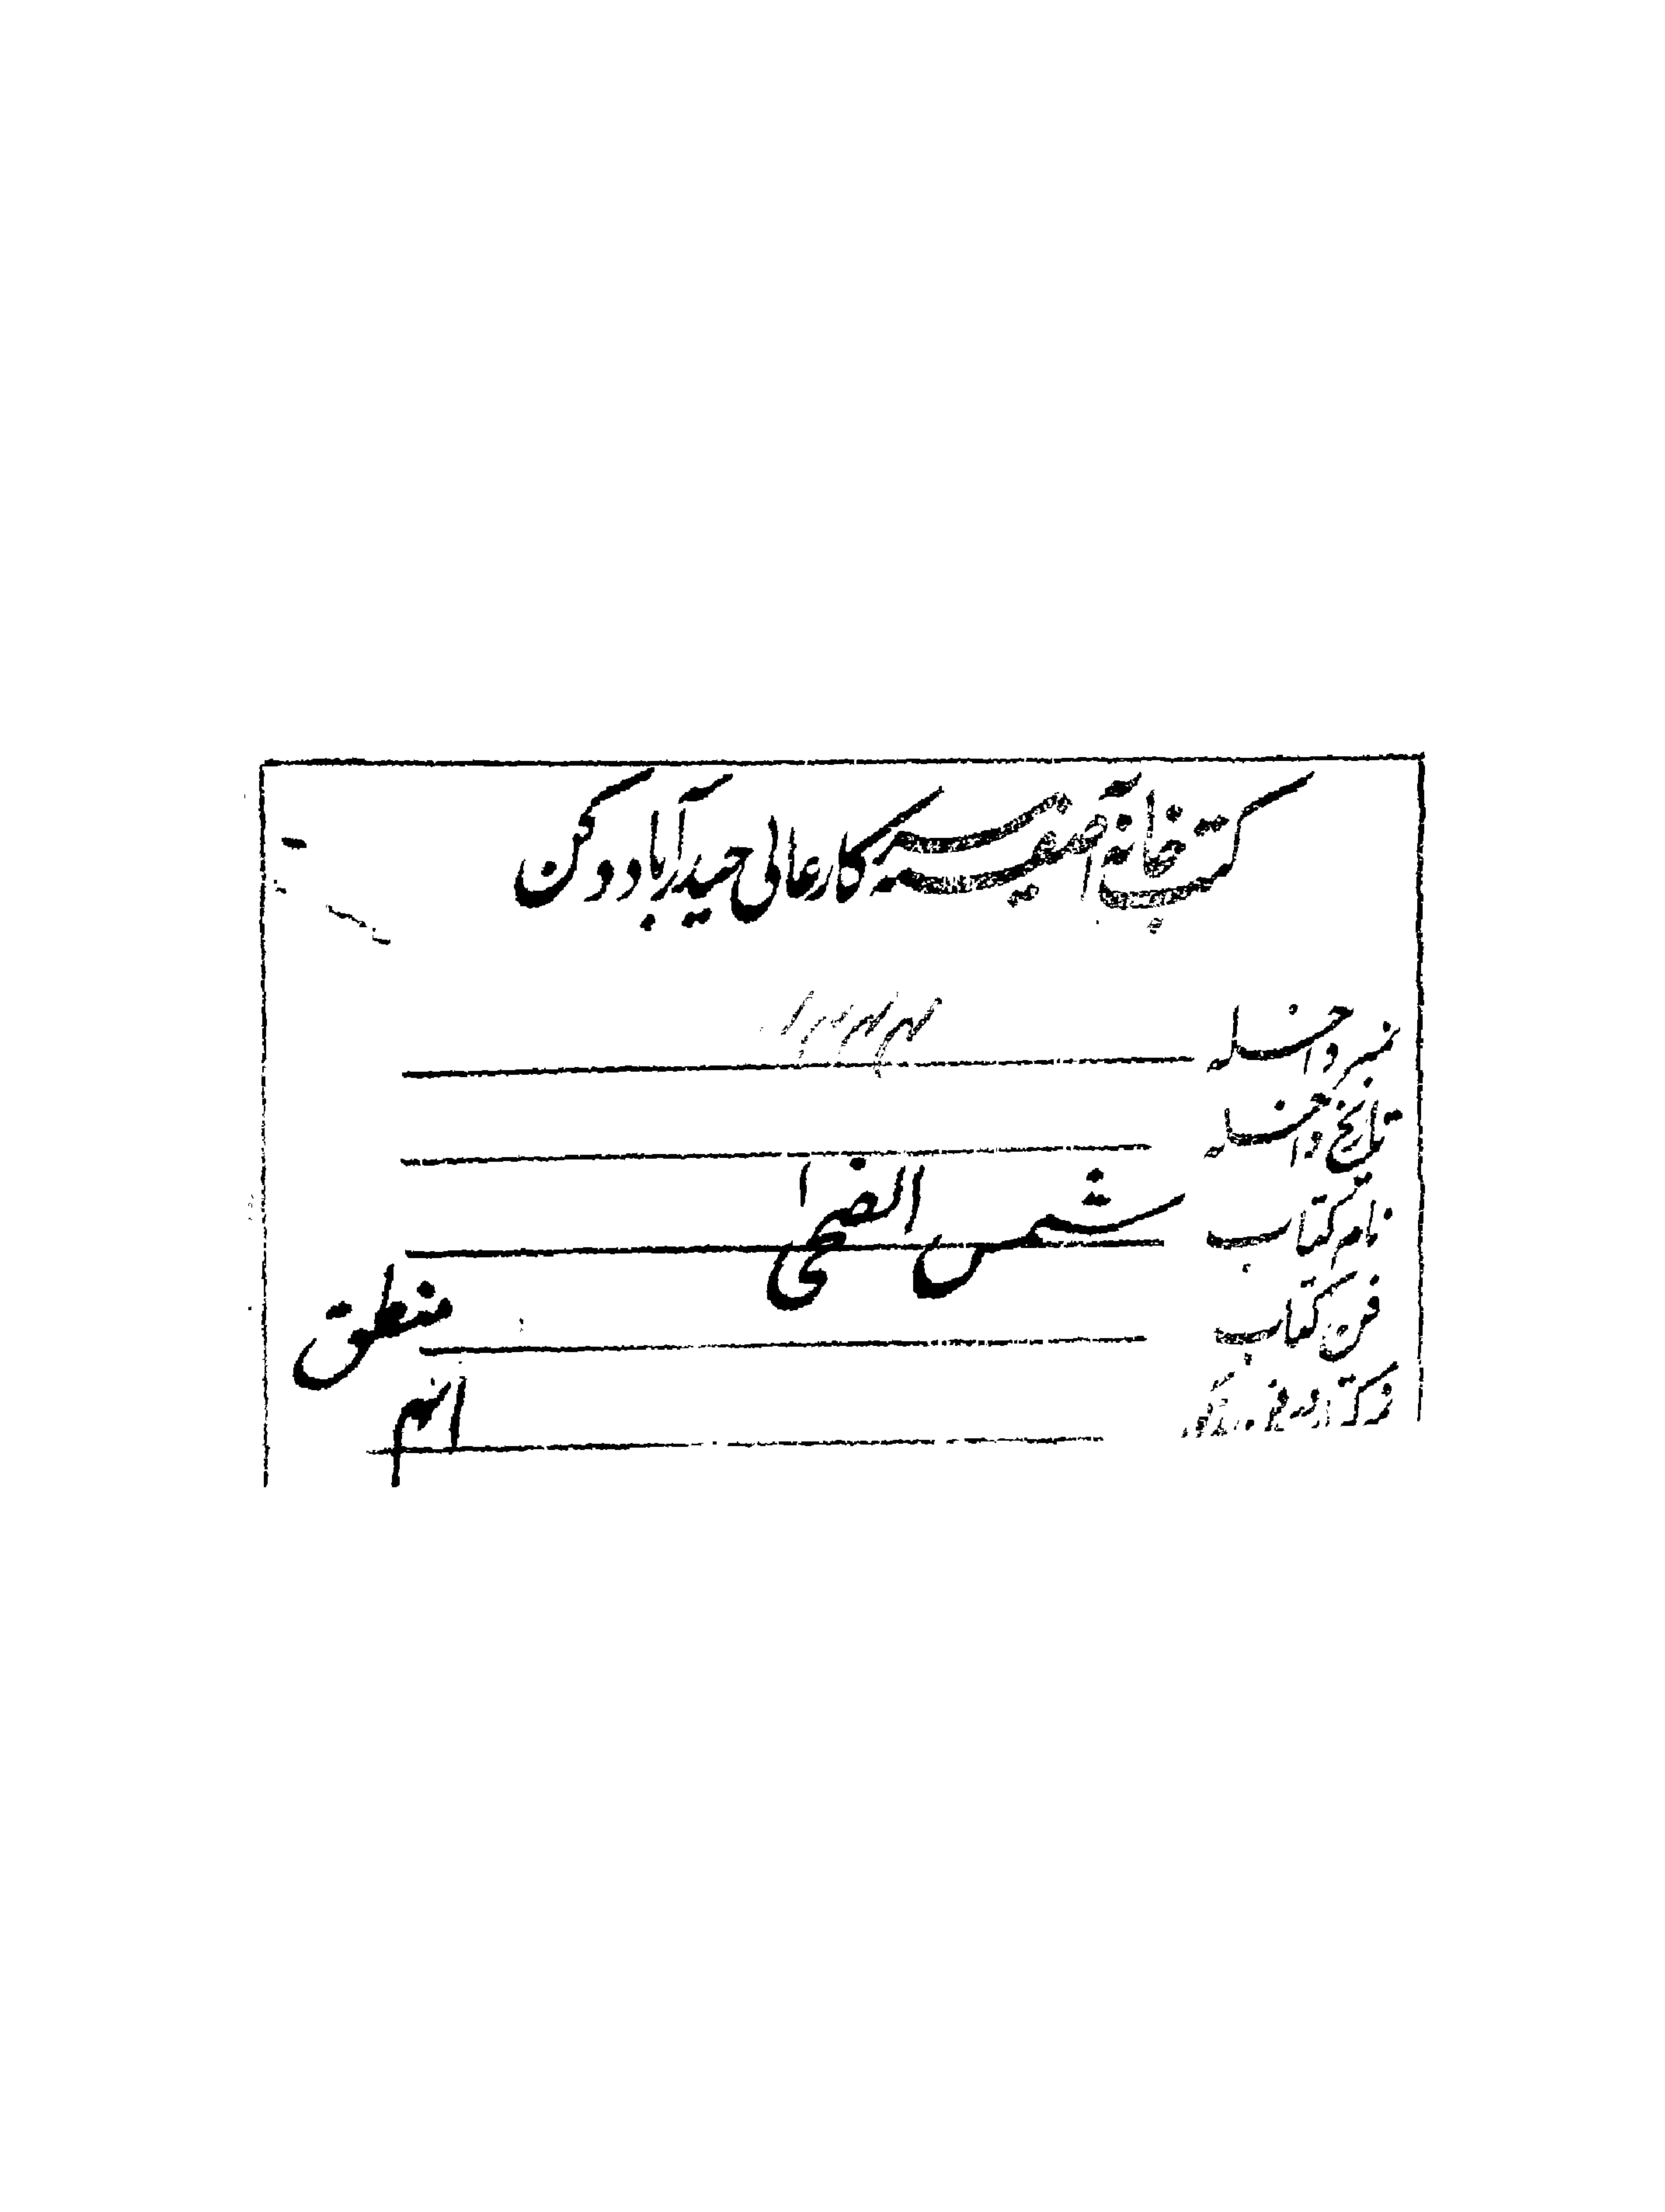 کتب خانۂ آصفیہ سرکار عالی حیدرآباد دکن
نمبر داخلہ
تاریخ داخلہ
نام کتاب شمس الضحیٰ
فن کتاب منطق